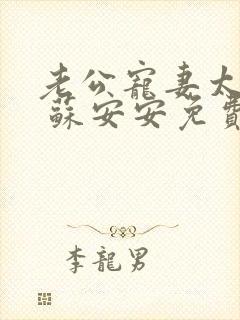 老公寵妻太
蘇安安免費
李龍男